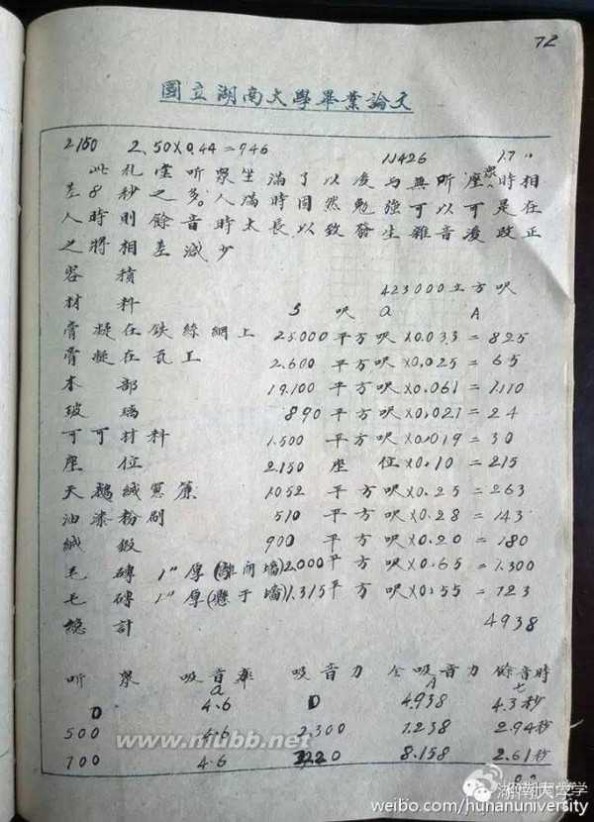 72
國立湖南大學畢業論文
2150 2.50×0.44=946 11426 1.7"
此礼堂听衆坐滿了以凌与無听衆時相
差8秒之多。人滿時固然勉強可以可是在
人時則餘音時太長以致發生雜音凌改正
之將相差減少
容積 423000立方呎
材料 S 呎 a A
膏凝在鉄絲網上 25.000平方呎×0.033=825
膏凝在瓦上 2.600平方呎×0.025=65
木部 19.100平方呎×0.061=1.110
玻璃 890平方呎×0.027=24
可可材料 1.500平方呎×0.019=30
座位 2.150座位×0.10=215
天鵝絨窓簾 1052平方呎×0.25=263
油漆粉刷 510平方呎×0.28=143
絨緞 900平方呎×0.20=180
毛磚1"厚(離间墻)2.000平方呎×0.65=1.300
毛磚1"厚(懸于墻)1.315平方呎×0.55=723
總計 4938
听衆 吸音率 吸音力 仝吸音力 餘音時
a A t
0 4.6 0 4.938 4.3秒
500 4.6 2.300 7.238 2.94秒
700 4.6 3220 8.158 2.61秒
www.mubb.net
湖南大学
weibo.com/hunanuniversity